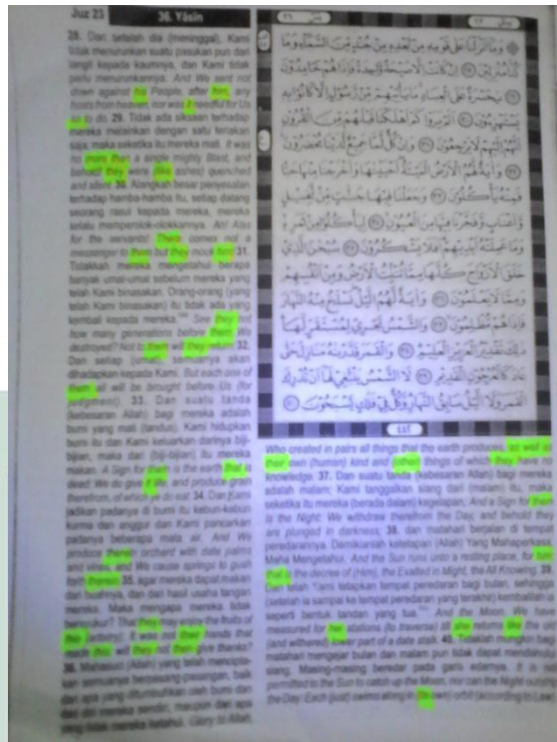 Juz 23
36. Yâsîn
28. Dan setelah dia (meninggal), Kami
tidak menurunkan suatu pasukan pun dari
langit kepada kaumnya, dan Kami tidak
perlu menurunkannya. And We sent not
down against his People, after him, any
hosts from heaven, nor was it needful for Us
so to do. 29. Tidak ada siksaan terhadap
mereka melainkan dengan satu teriakan
saja; maka seketika itu mereka mati. It was
no more than a single mighty Blast, and
behold! they were (like ashes) quenched
and silent. 30. Alangkah besar penyesalan
terhadap hamba-hamba itu, setiap datang
seorang rasul kepada mereka, mereka
selalu memperolok-olokkannya. Ah! Alas
for the servants! There comes not a
messenger to them but they mock him! 31.
Tidakkah mereka mengetahui berapa
banyak umat-umat sebelum mereka yang
telah Kami binasakan. Orang-orang (yang
telah Kami binasakan) itu tidak ada yang
kembali kepada mereka. See they not
how many generations before them We
destroyed? Not to them will they return: 32.
Dan setiap (umat), semuanya akan
dihadapkan kepada Kami. But each one of
them all will be brought before Us (for
judgement). 33. Dan suatu tanda
(kebesaran Allah) bagi mereka adalah
bumi yang mati (tandus). Kami hidupkan
bumi itu dan Kami keluarkan darinya biji-
bijian, maka dari (biji-bijian) itu mereka
makan. A Sign for them is the earth that is
dead: We do give it life, and produce grain
therefrom, of which ye do eat. 34. Dan Kami
jadikan padanya di bumi itu kebun-kebun
kurma dan anggur dan Kami pancarkan
padanya beberapa mata air. And We
produce therein orchard with date palms
and vines, and We cause springs to gush
forth therein: 35. agar mereka dapat makan
dari buahnya, dan dari hasil usaha tangan
mereka. Maka mengapa mereka tidak
bersyukur? That they may enjoy the fruits of
this (artistry): It was not their hands that
made this: will they not then give thanks?
36. Mahasuci (Allah) yang telah mencipta-
kan semuanya berpasang-pasangan, baik
dari apa yang ditumbuhkan oleh bumi dan
dari diri mereka sendiri, maupun dari apa
yang tidak mereka ketahui. Glory to Allah,
وما أنزلنا على قومه من بعده من جند من السماء وما
كنا منزلين ٢٨ إن كانت إلا صيحة واحدة فإذا هم خامدون
٢٩ يحسرة على العباد ما يأتيهم من رسول إلا كانوا به
يستهزءون ٣٠ ألم يروا كم أهلكنا قبلهم من القرون
أنهم إليهم لا يرجعون ٣١ وإن كل لما جميع لدينا محضرون
٣٢ وءاية لهم الأرض الميتة أحييناها وأخرجنا منها حبا
فمنه يأكلون ٣٣ وجعلنا فيها جنات من نخيل
وأعناب وفجرنا فيها من العيون ٣٤ ليأكلوا من ثمره
وما عملته أيديهم أفلا يشكرون ٣٥ سبحان الذي
خلق الأزواج كلها مما تنبت الأرض ومن أنفسهم
ومما لا يعلمون ٣٦ وءاية لهم الليل نسلخ منه النهار
فإذا هم مظلمون ٣٧ والشمس تجري لمستقر لها
ذلك تقدير العزيز العليم ٣٨ والقمر قدرناه منازل حتى
عاد كالعرجون القديم ٣٩ لا الشمس ينبغي لها أن تدرك
القمر ولا الليل سابق النهار وكل في فلك يسبحون ٤٠
٤٤٢
Who created in pairs all things that the earth produces, as well as
their own (human) kind and (other) things of which they have no
knowledge. 37. Dan suatu tanda (kebesaran Allah) bagi mereka
adalah malam; Kami tanggalkan siang dari (malam) itu, maka
seketika itu mereka (berada dalam) kegelapan, And a Sign for them
is the Night: We withdraw therefrom the Day, and behold they
are plunged in darkness; 38. dan matahari berjalan di tempat
peredarannya. Demikianlah ketetapan (Allah) Yang Mahaperkasa,
Maha Mengetahui. And the Sun runs unto a resting place, for him:
that is the decree of (Him), the Exalted in Might, the All Knowing. 39.
Dan telah Kami tetapkan tempat peredaran bagi bulan, sehingga
(setelah ia sampai ke tempat peredaran yang terakhir) kembalilah ia
seperti bentuk tandan yang tua. And the Moon, We have
measured for her stations (to traverse) till she returns like the old
(and withered) lower part of a date stalk. 40. Tidaklah mungkin bagi
matahari mengejar bulan dan malam pun tidak dapat mendahului
siang. Masing-masing beredar pada garis edarnya. It is not
permitted to the Sun to catch up the Moon, nor can the Night outstrip
the Day: Each (just) swims along in (its own) orbit (according to Law).